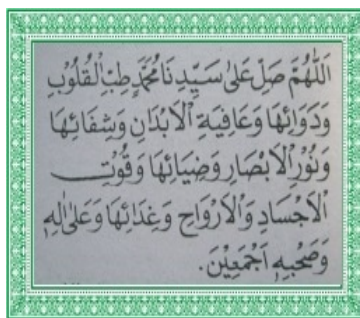 اَللّٰهُمَّ صَلِّ عَلٰى سَيِّدِنَا مُحَمَّدٍ طِبِّ الْقُلُوْبِ
وَدَوَائِهَا وَعَافِيَةِ الْاَبْدَانِ وَشِفَائِهَا
وَنُوْرِ الْاَبْصَارِ وَضِيَائِهَا وَقُوْتِ
الْاَجْسَادِ وَالْاَرْوَاحِ وَغِذَائِهَا وَعَلٰى اٰلِهٖ
وَصَحْبِهٖ اَجْمَعِيْنَ.